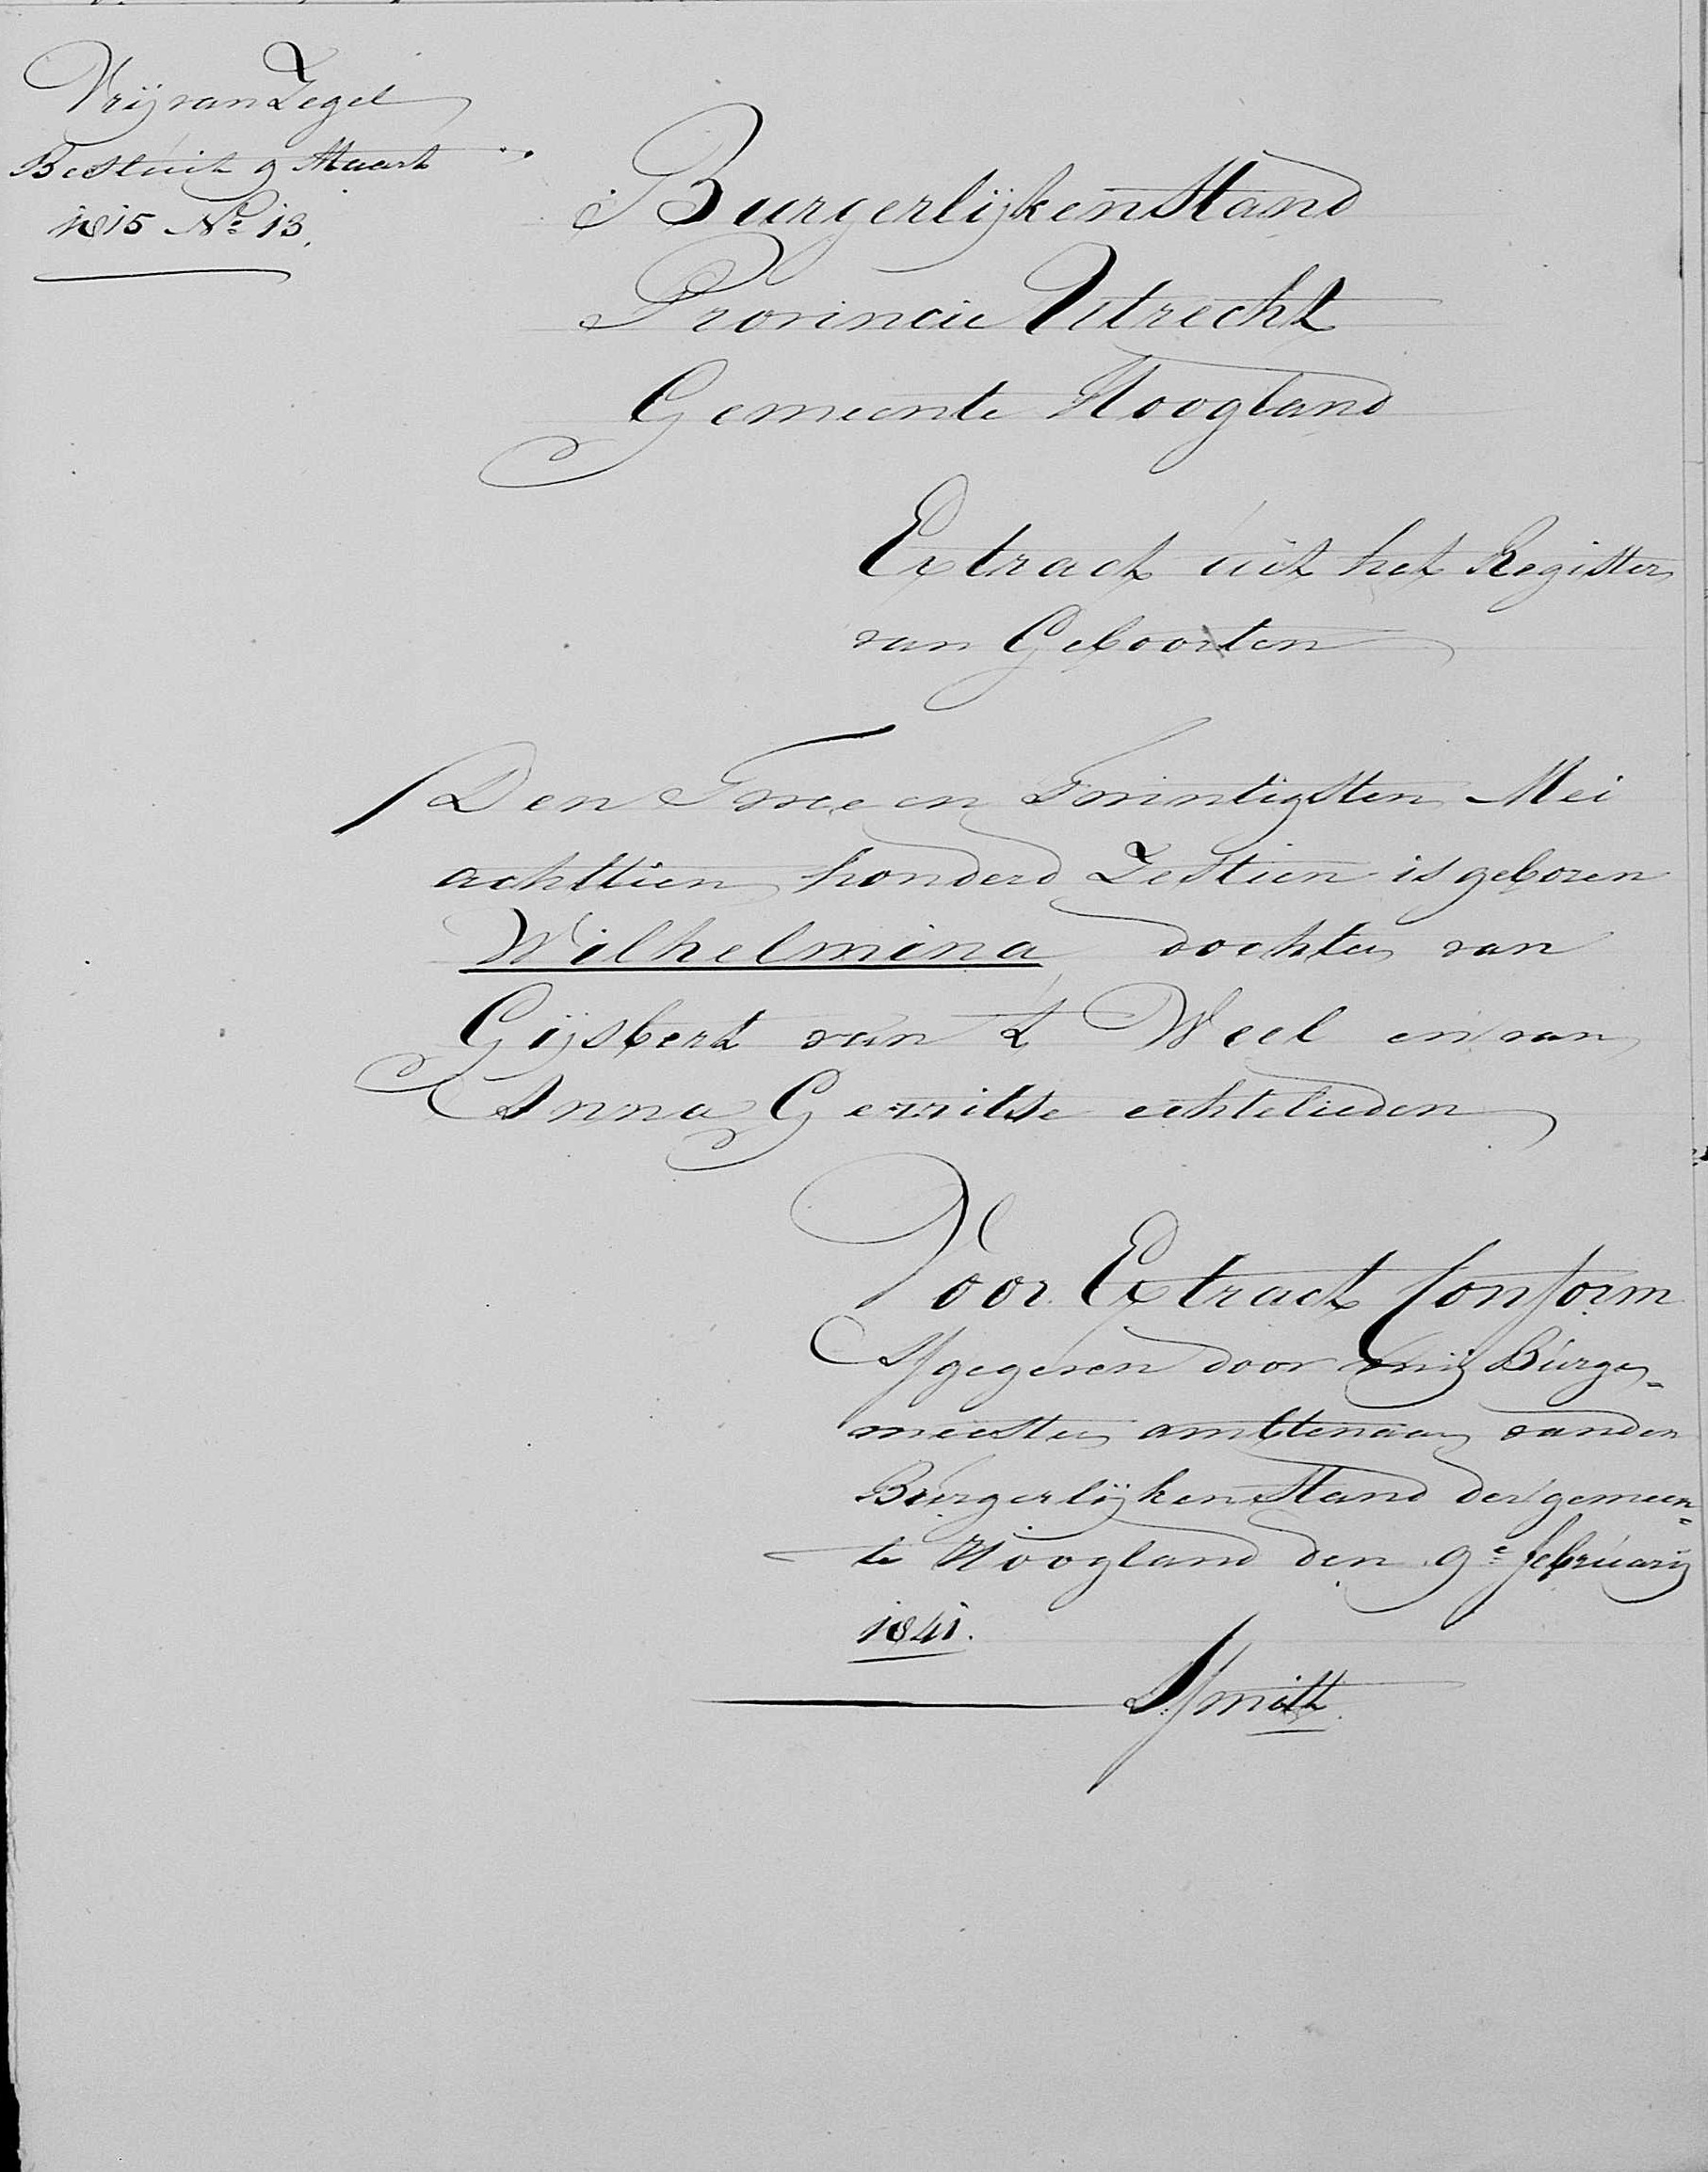 Vrij van Zegel
Besluit 9 Maart
1815 No 13.
Burgerlijken Stand
Provincie Utrecht
Gemeente Hoogland
Extract uit het Register
van Geboorten
Den Twee en Twintigsten Mei
achttien honderd Zestien is geboren
Wilhelmina dochter van
Gijsbert van 't Weel en van
Anna Gerritse echtelieden
Voor Extract Conform
Afgegeven door mij Burge=
meester ambtenaar van den
Burgerlijken Stand der gemeen=
te Hoogland den 9e februarij
1841.
Smith